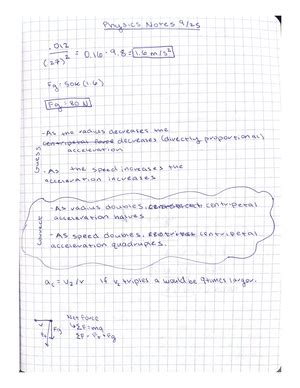 Physics Notes 9/25
.012
(.27)² = 0.16 · 9.8 = 1.6 m/s²
Fg: 50k (1.6)
Fg = 80 N
Guess
- As the radius decreases the
centripetal force decreases (directly proportional)
acceleration
- As the speed increases the
acceleration increases
Correct
- As radius doubles, centripetal
acceleration halves
- As speed doubles, centripetal
acceleration quadruples.
If v triples a would be 9times larger.
Net Force
ΣF = mg